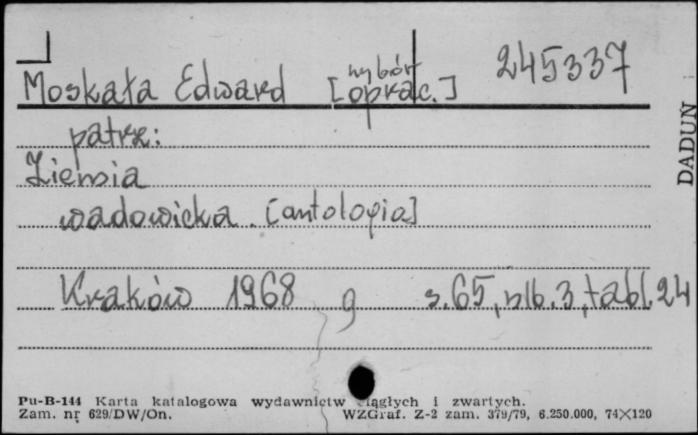 245337
wybór
Moskała Edward [oprac.]
patrz:
Ziemia
wadowicka. [antologia]
Kraków 1968 g s. 65, nlb. 3, tabl. 24
DADUN
Pu-B-144 Karta katalogowa wydawnictw ciągłych i zwartych.
Zam. nr 629/DW/On. WZGraf. Z-2 zam. 379/79, 6.250.000, 74×120